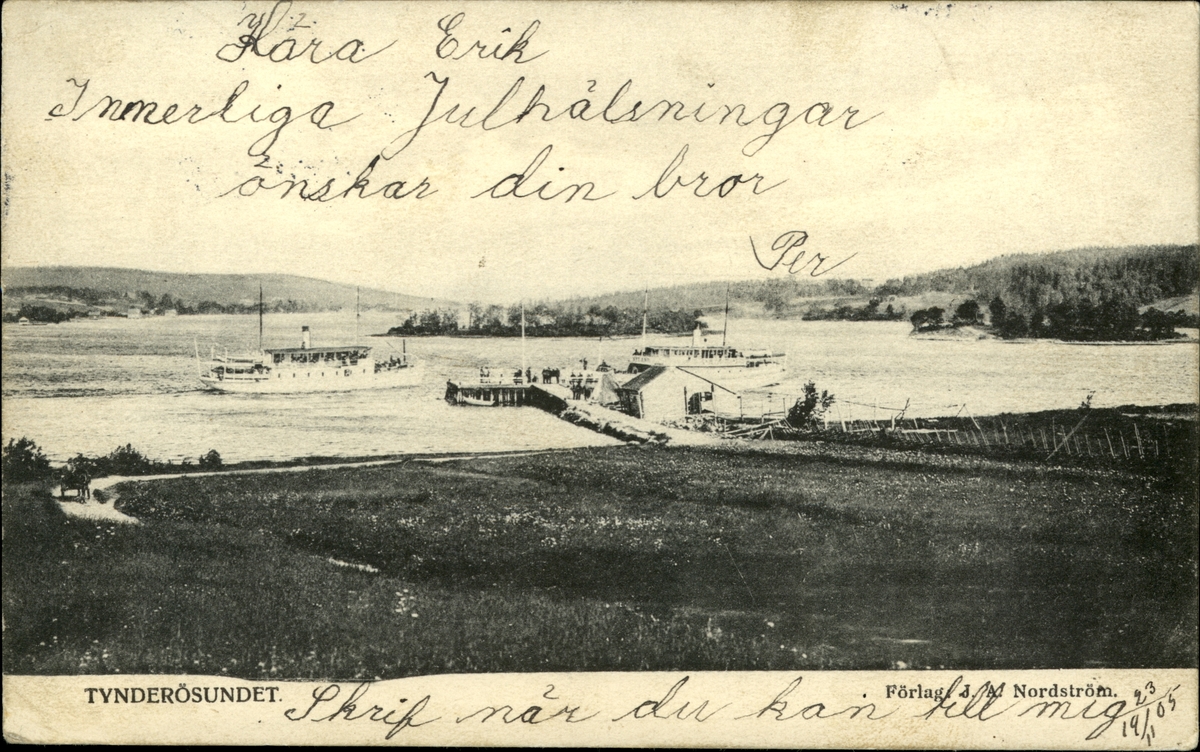 Kära Erik
Innerliga Julhälsningar
önskar din bror
Per
TYNDERÖSUNDET.
Förlag. J. A. Nordström.
Skrif när du kan till mig